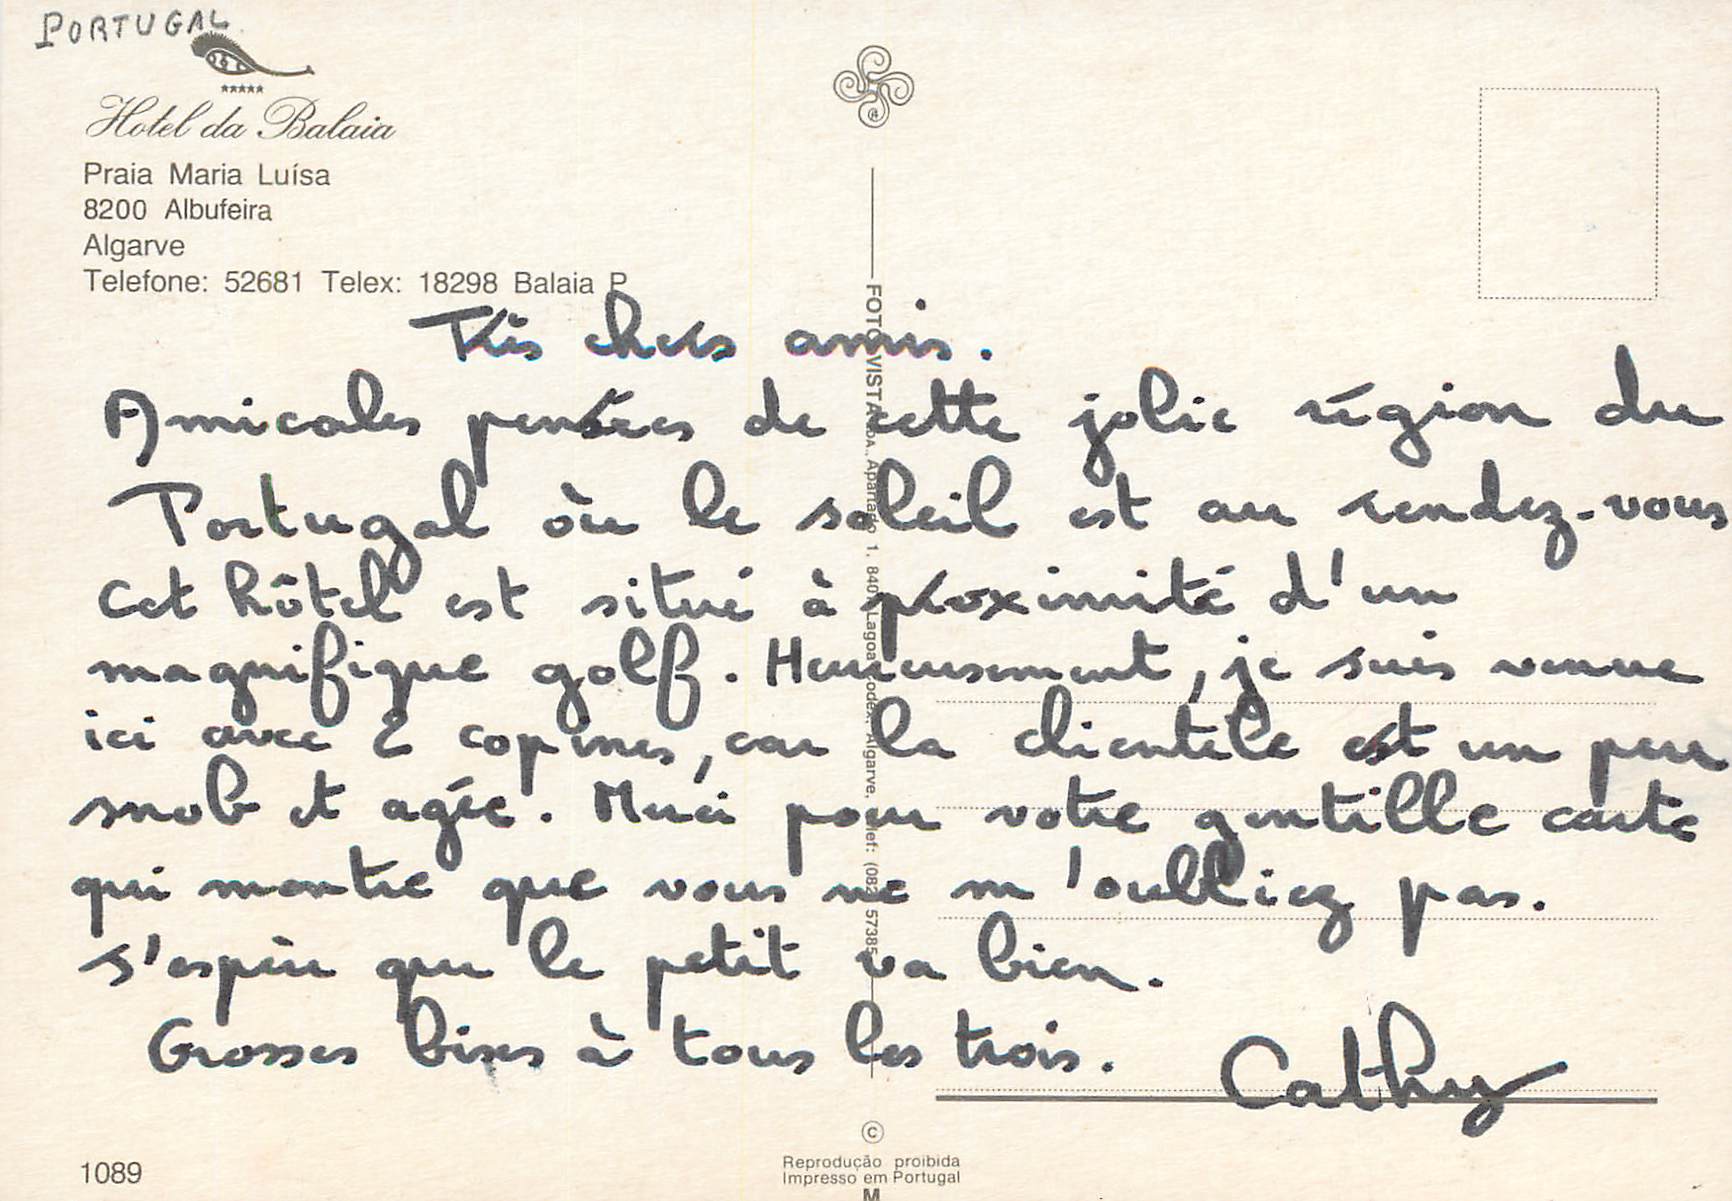 PORTUGAL
★★★★★
Hotel da Balaia
Praia Maria Luísa
8200 Albufeira
Algarve
Telefone: 52681 Telex: 18298 Balaia P
Très chers amis.
Amicales pensées de cette jolie région du
Portugal où le soleil est au rendez-vous
Cet hôtel est situé à proximité d'un
magnifique golf. Heureusement, je suis venue
ici avec 2 copines, car la clientèle est un peu
snob et agée. Merci pour votre gentille carte
qui montre que vous ne m'oubliez pas.
J'espère que le petit va bien.
Grosses bises à tous les trois.
Cathy
FOTO VISTA LDA., Apartado 1, 8401 Lagoa Codex, Algarve, Telef: (082) 57385
©
Reprodução proibida
Impresso em Portugal
M
1089